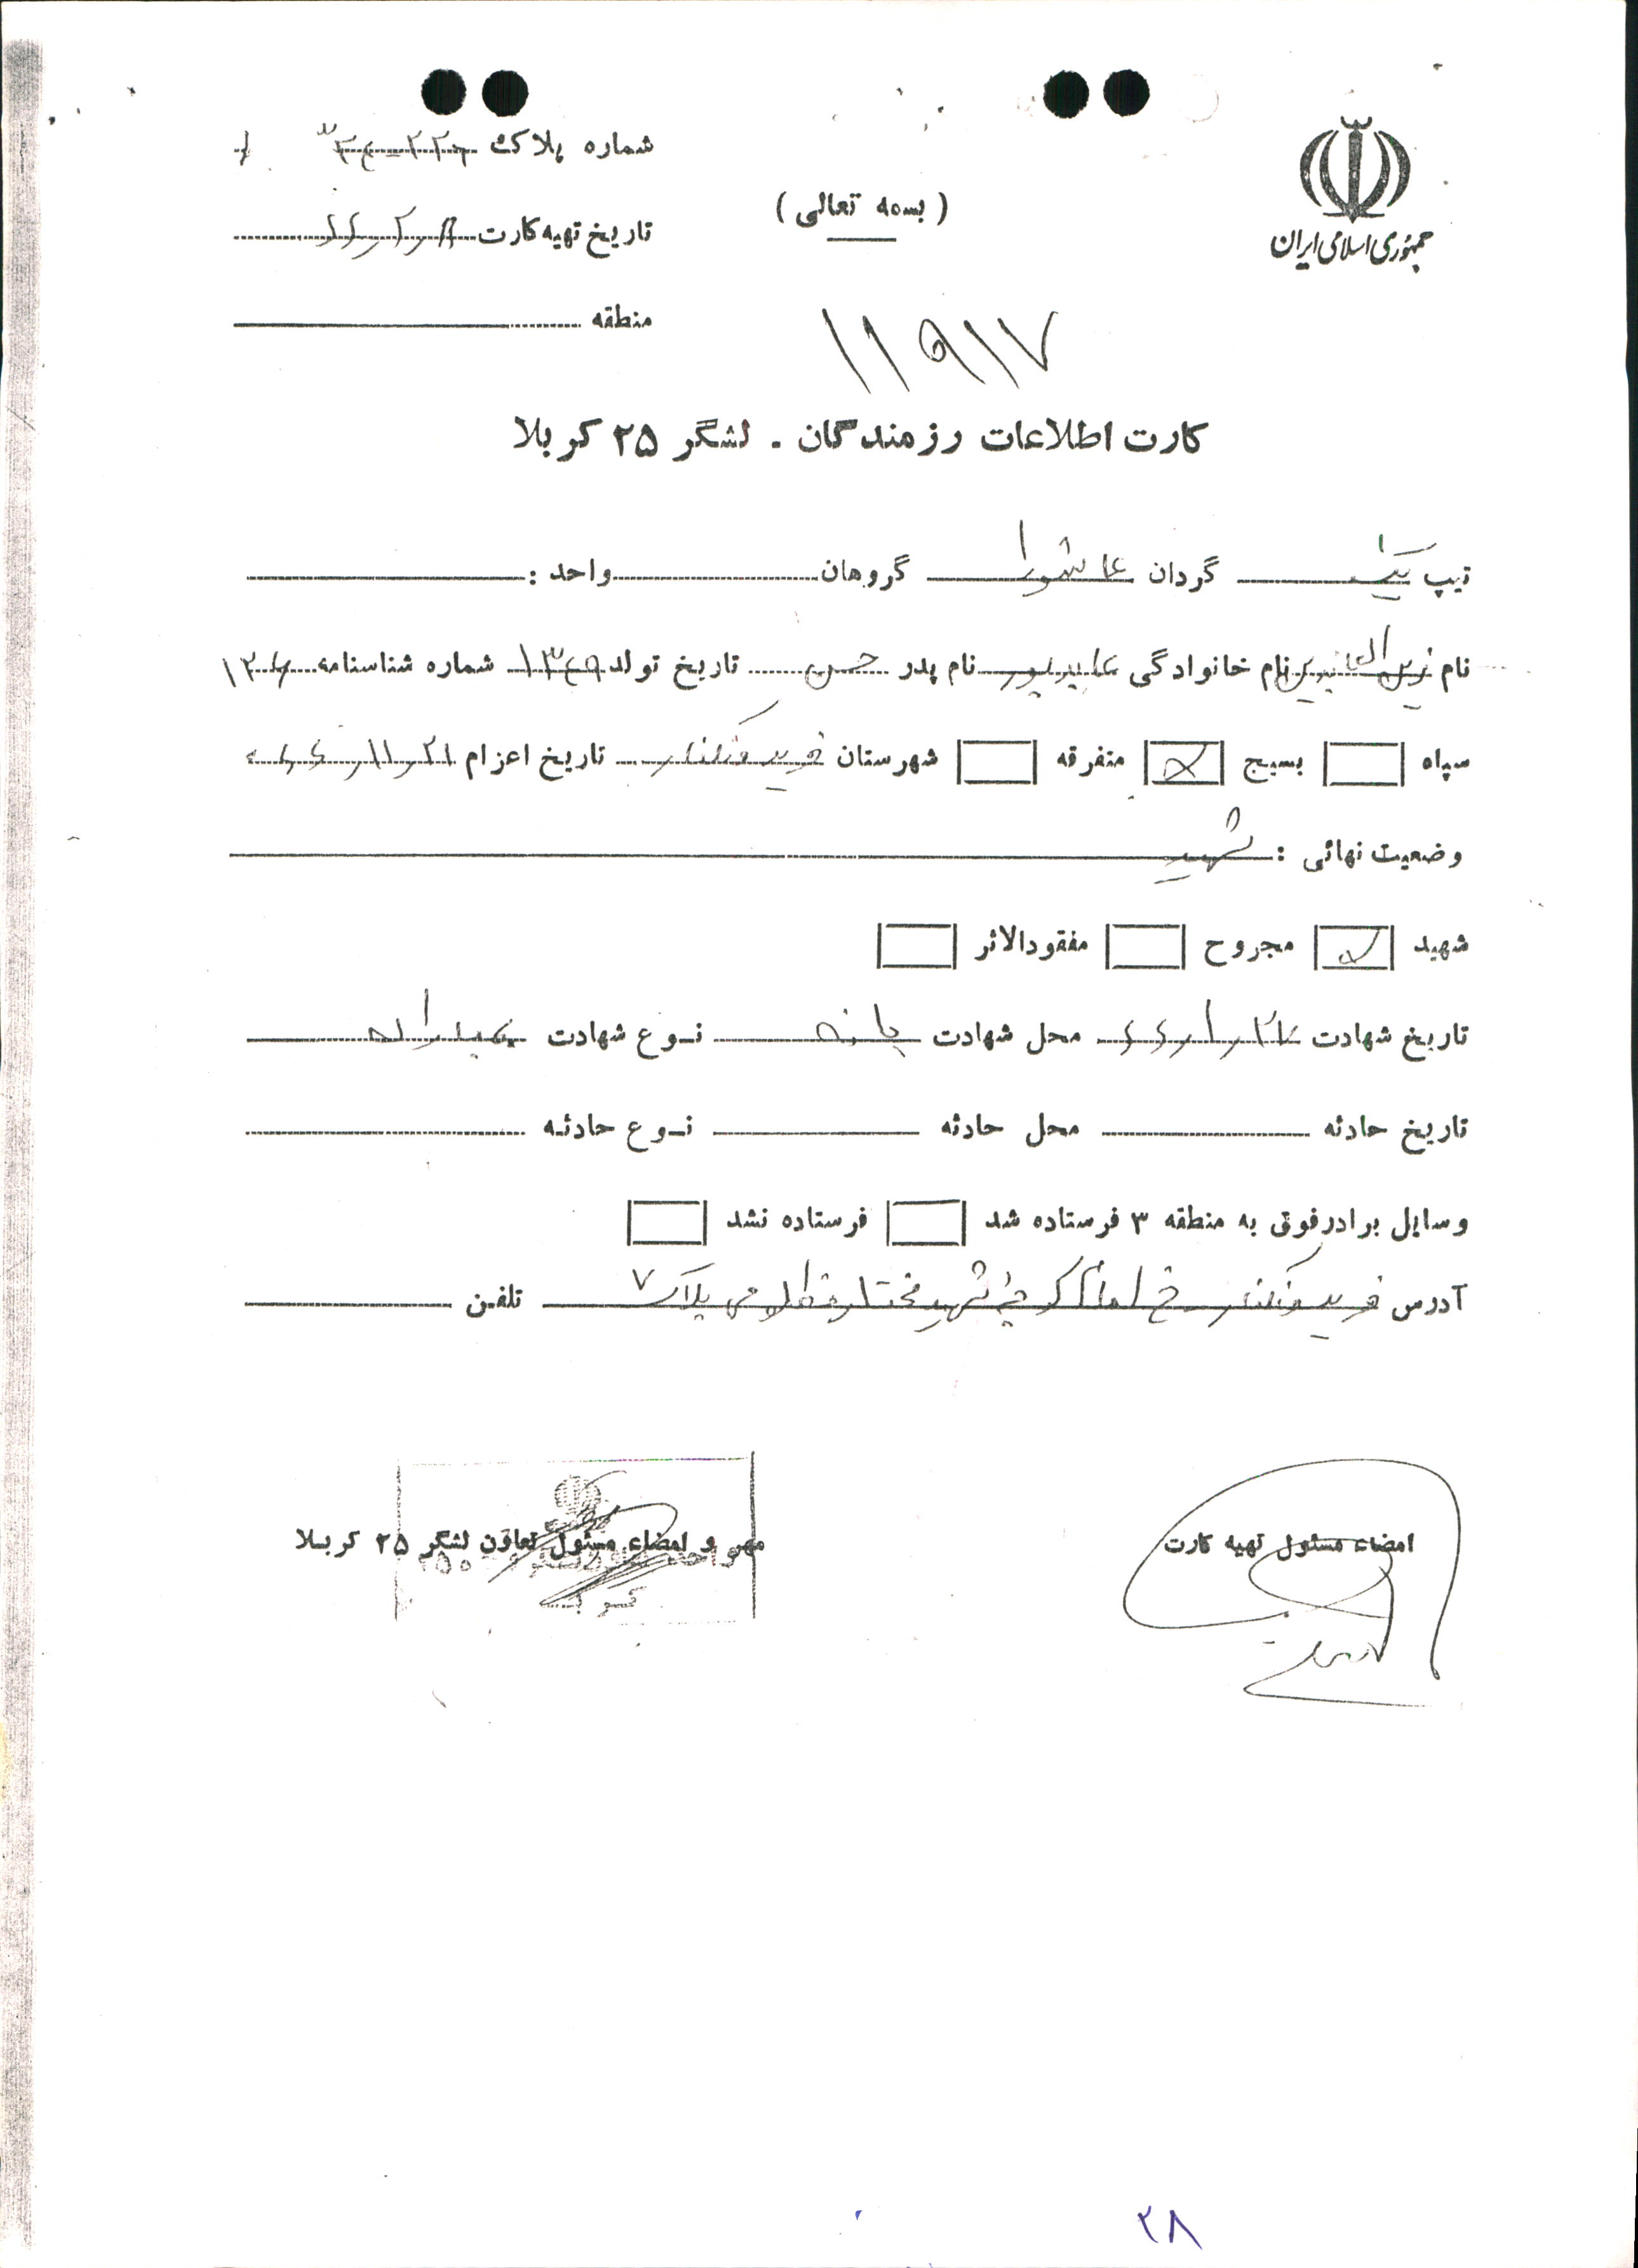 جمهوری اسلامی ایران
( بسمه تعالی )
شماره پلاک
تاریخ تهیه کارت
منطقه
۱۱۹۱۷
کارت اطلاعات رزمندگان . لشگر ۲۵ کربلا
تیپ یک گردان عاشورا گروهان واحد :
نام زین العابدین نام خانوادگی عابدپور نام پدر حسن تاریخ تولد شماره شناسنامه
سپاه بسیج متفرقه شهرستان فریدونکنار تاریخ اعزام
وضعیت نهائی : شهید
شهید مجروح مفقودالاثر
تاریخ شهادت محل شهادت بانه نوع شهادت بمباران
تاریخ حادثه محل حادثه نوع حادثه
وسایل برادر فوق به منطقه ۳ فرستاده شد فرستاده نشد
آدرس فریدونکنار خ شهید پلاک ۷ تلفن
امضاء مسئول تهیه کارت
مهر و امضاء مسئول تعاون لشگر ۲۵ کربلا
۲۸